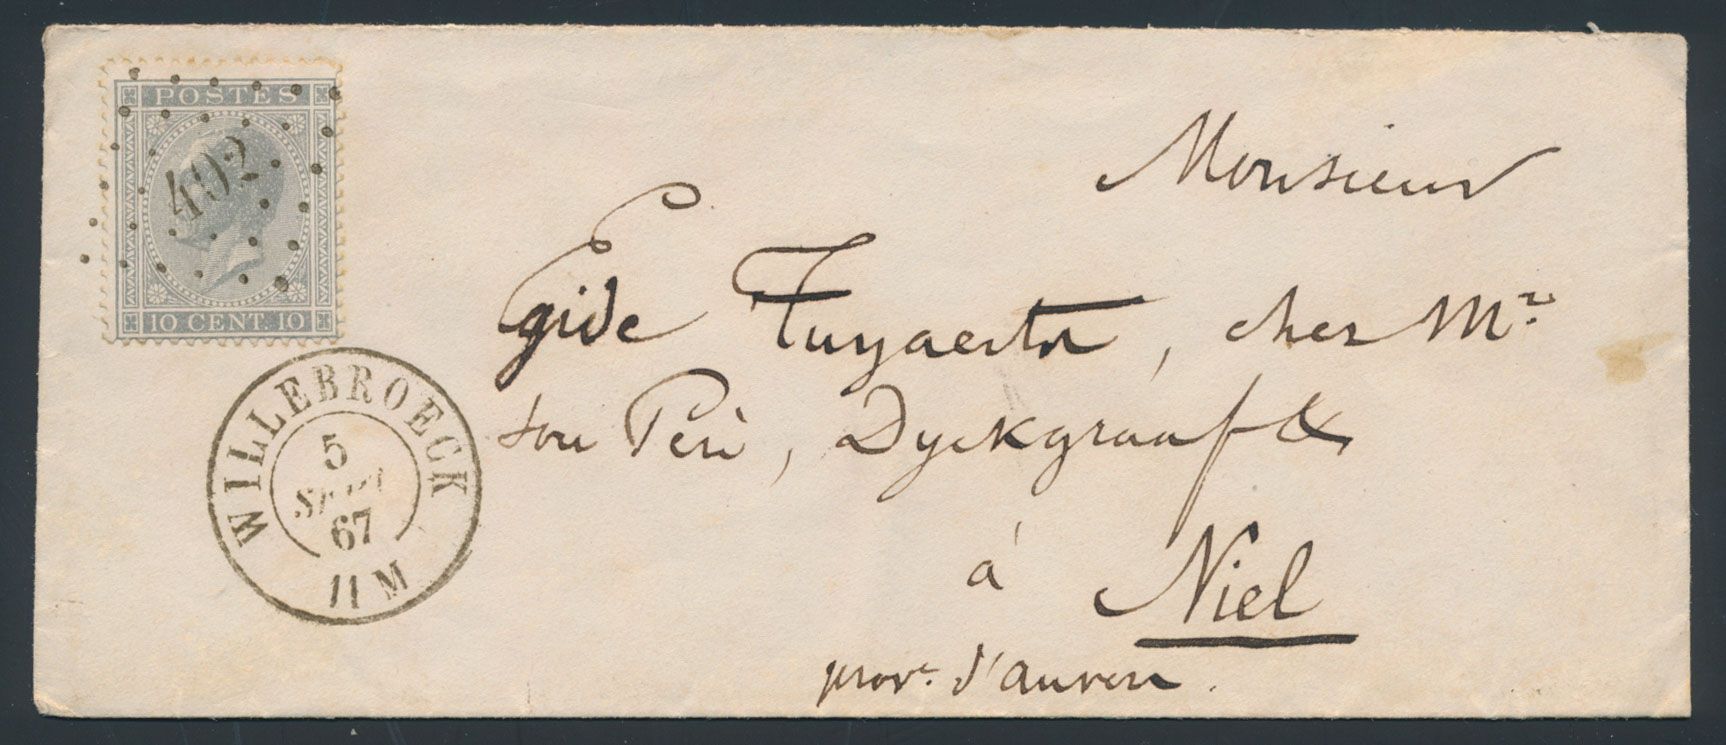 POSTES
402
10 CENT. 10
WILLEBROECK
5
SEPT
67
11 M
Monsieur
Egide Tuyaerts, chez Mr
son Père, Dyckgraaf &
à Niel
prov. d'anvers.